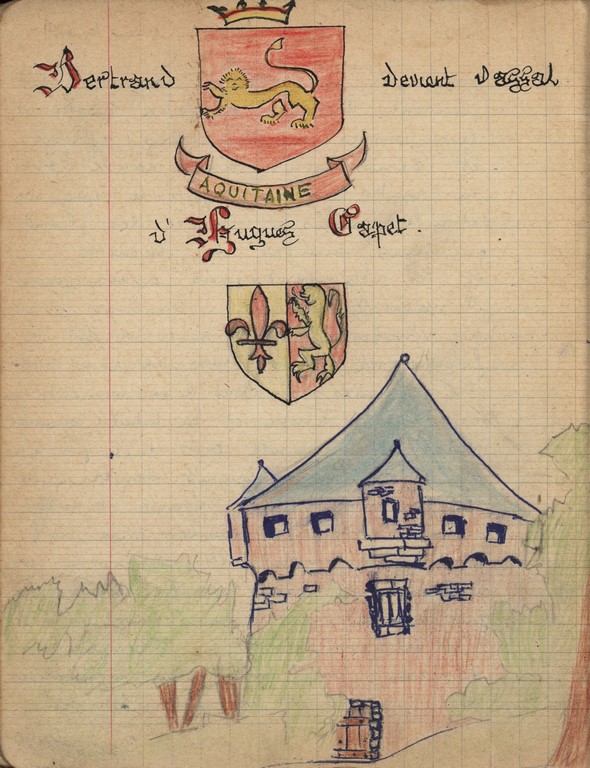 Bertrand devient vassal
AQUITAINE
d' Hugues Capet.